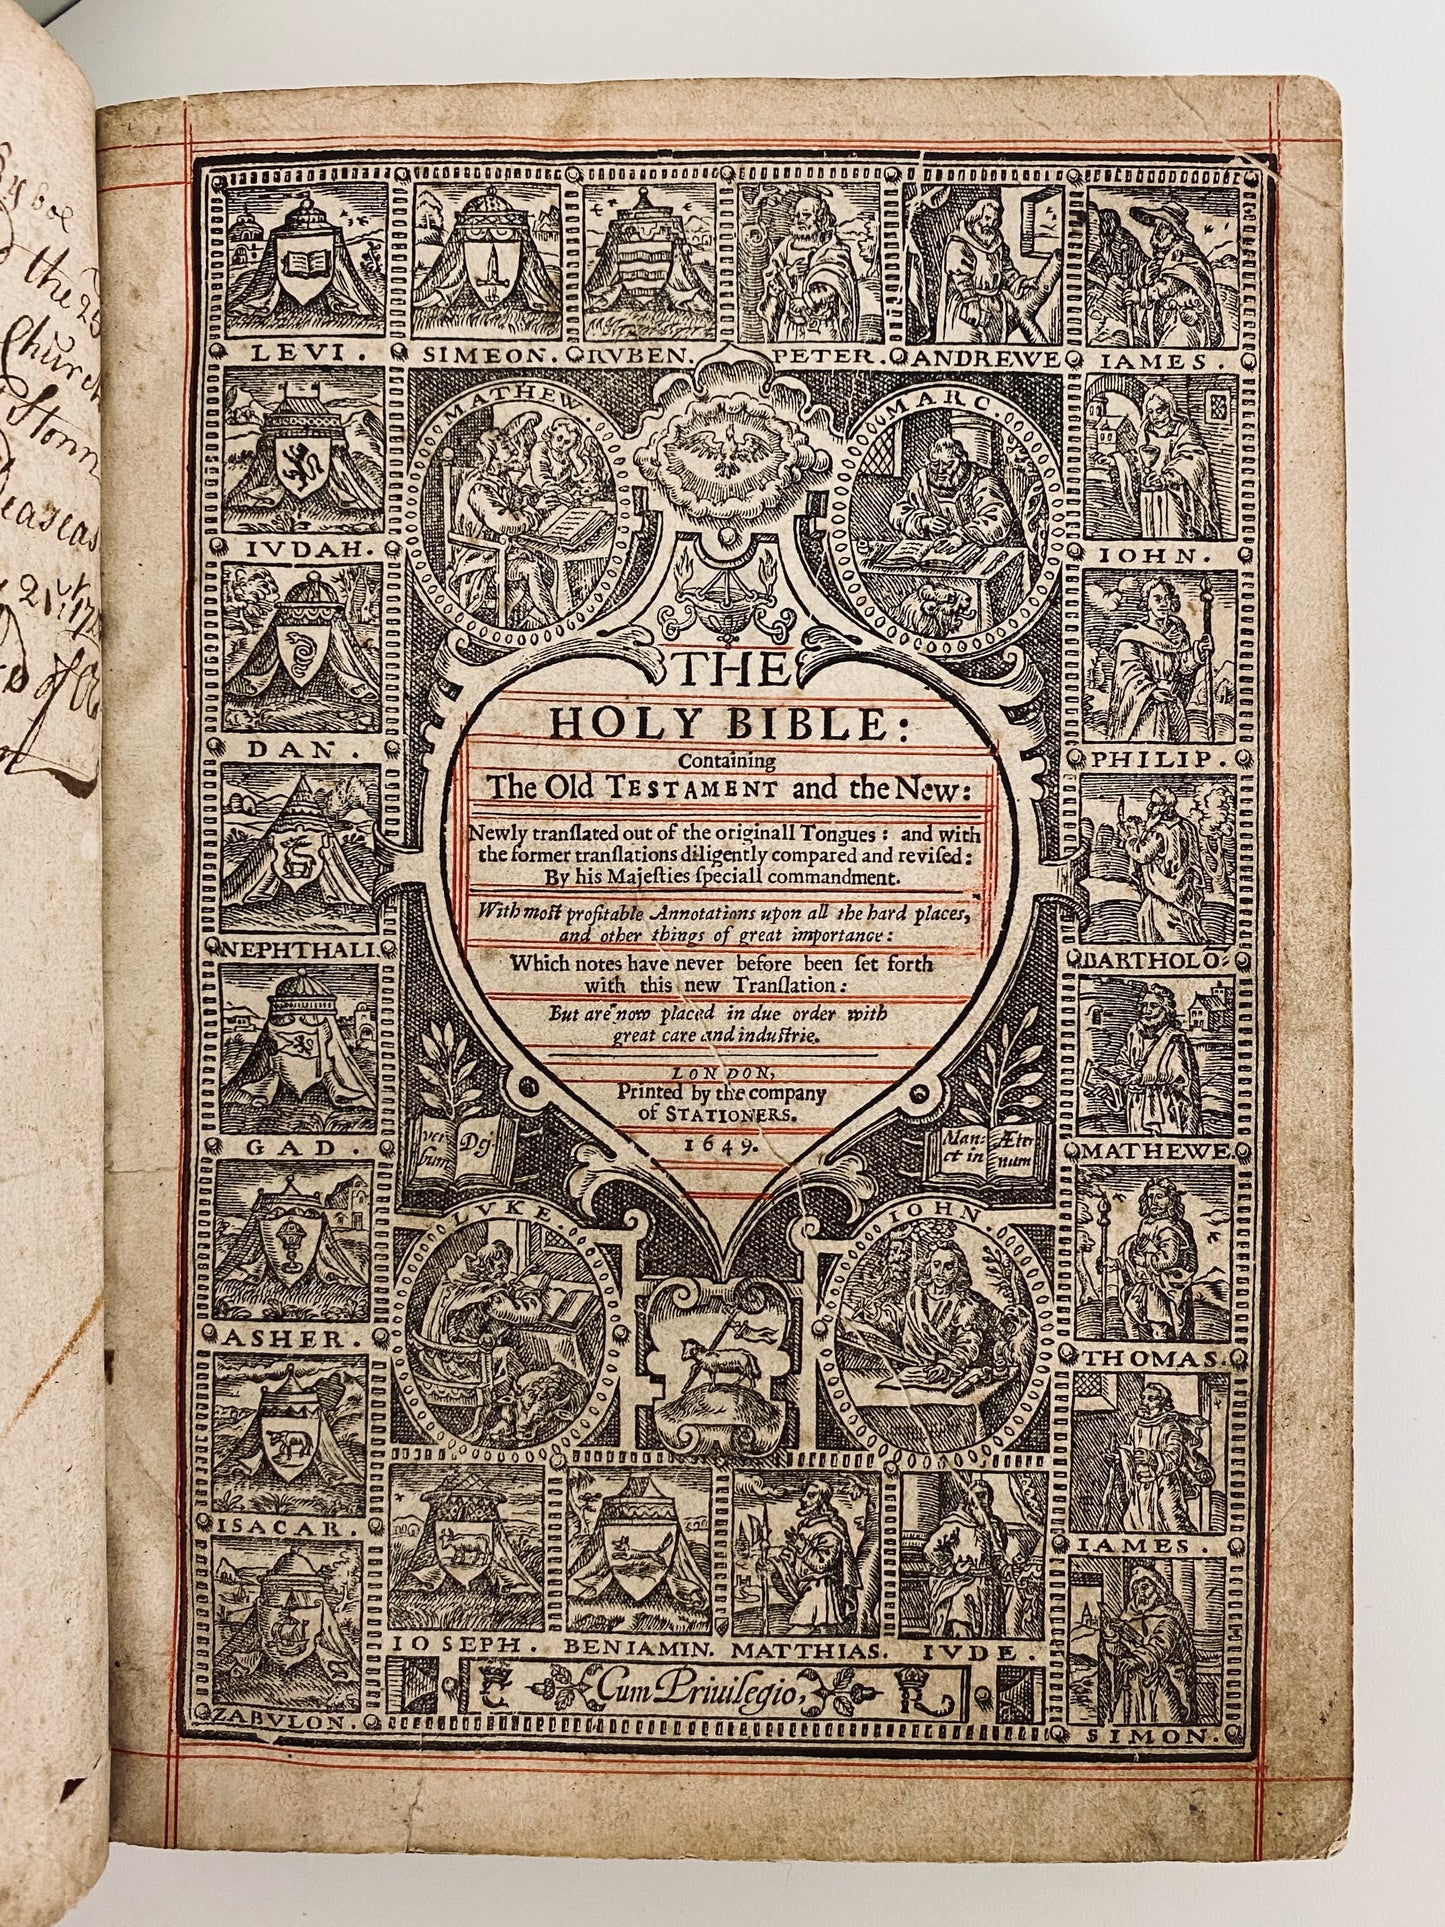 the 25
Church
LEVI. SIMEON. RVBEN. PETER. ANDREWE IAMES.
MATHEW. MARC.
IVDAH. IOHN.
DAN. PHILIP.
NEPHTHALI. BARTHOLO:
GAD. MATHEWE.
ASHER. THOMAS.
ISACAR. IAMES.
ZABVLON. SIMON.
THE
HOLY BIBLE:
Containing
The Old TESTAMENT and the New:
Newly tranſlated out of the originall Tongues: and with
the former tranſlations diligently compared and reviſed:
By his Majeſties ſpeciall commandment.
With moſt profitable Annotations upon all the hard places,
and other things of great importance:
Which notes have never before been ſet forth
with this new Tranſlation:
But are now placed in due order with
great care and induſtrie.
LONDON,
Printed by the company
of STATIONERS.
1649.
ver Dej.
bum
Man: Æter
et in num
LVKE. IOHN.
IOSEPH. BENIAMIN. MATTHIAS. IVDE.
Cum Priuilegio,